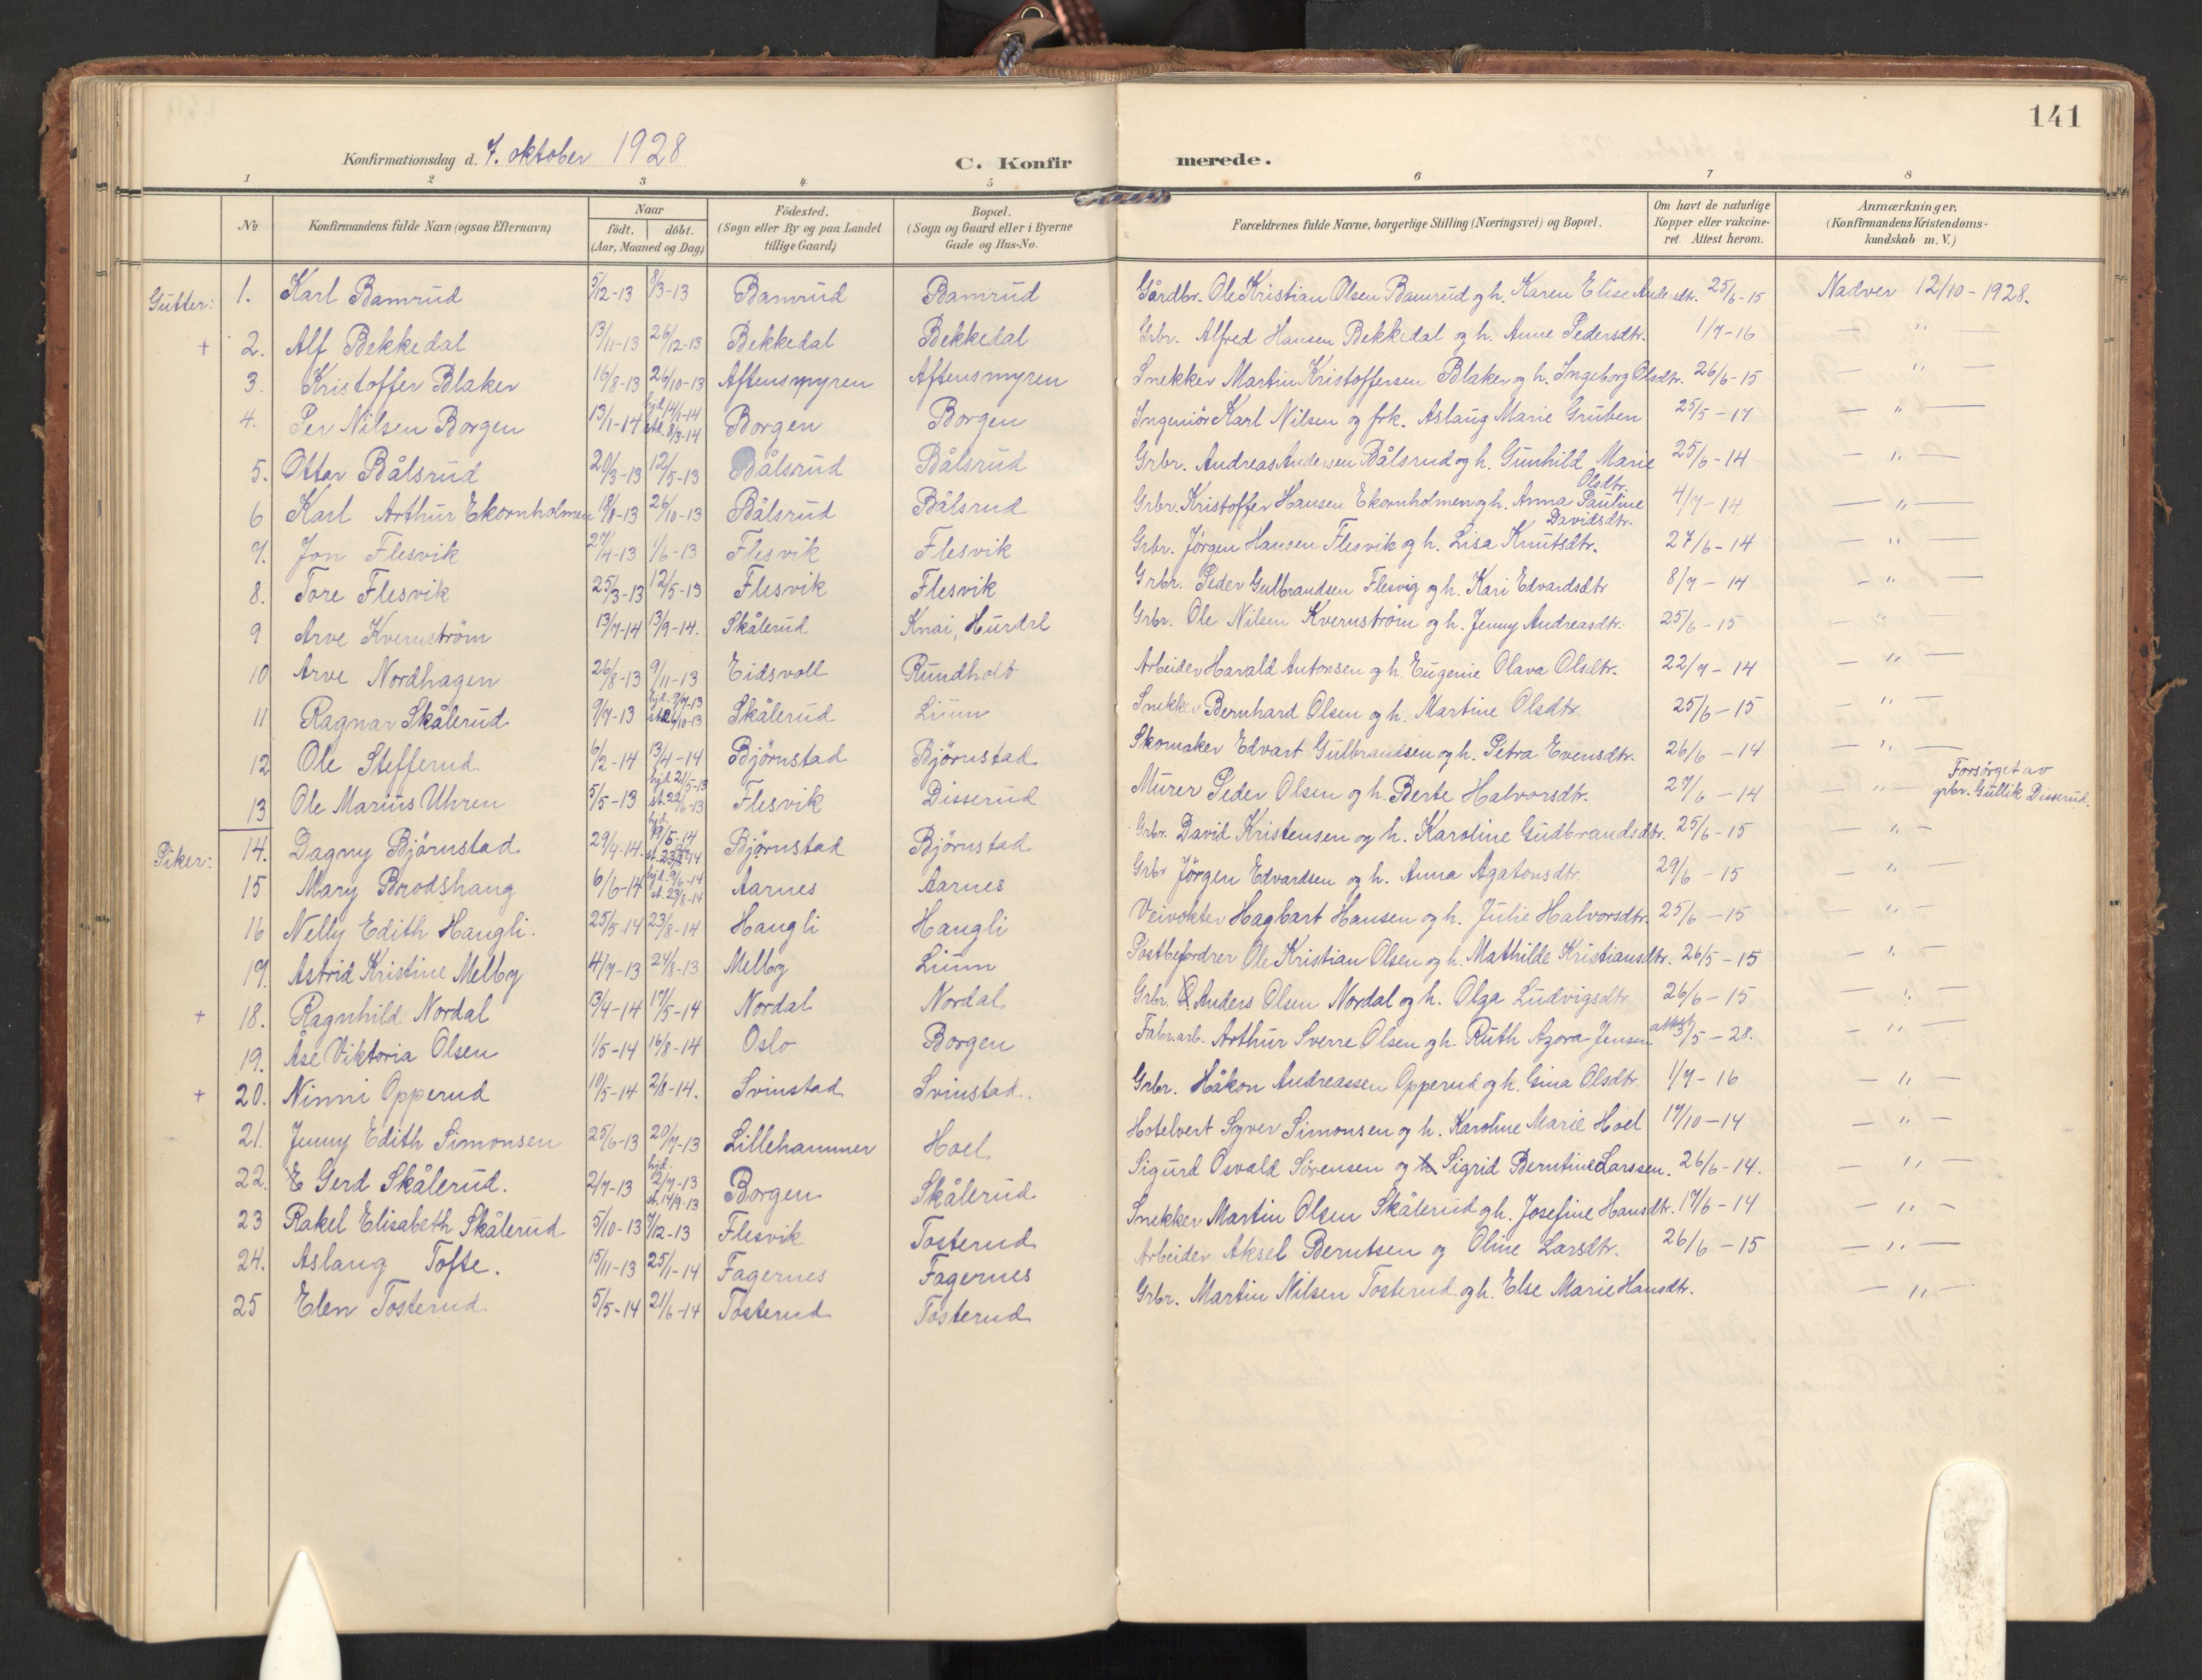 141
Konfirmationsdag d. 7. oktober 1928
C. Konfirmerede.
1 2 3 4 5 6 7 8
No
Konfirmandens fulde Navn (ogsaa Efternavn)
Naar
födt. döbt.
(Aar, Maaned og Dag)
Födested.
(Sogn eller By og paa Landet
tillige Gaard)
Bopæl.
(Sogn og Gaard eller i Byerne
Gade og Hus-No.
Forældrenes fulde Navne, borgerlige Stilling (Næringsvei) og Bopæl.
Om havt de naturlige
Kopper eller vakcine-
ret. Attest herom.
Anmærkninger,
(Konfirmandens Kristendoms-
kundskab m. V.)
Gutter: 1. Karl Bamrud 5/12-13 8/3-13 Bamrud Bamrud Gårdbr. Ole Kristian Olsen Bamrud og h. Karen Elise Andersdtr. 25/6-15 Nadver 12/10-1928.
+ 2. Alf Bekkedal 13/11-13 26/12-13 Bekkedal Bekkedal Grbr. Alfred Hansen Bekkedal og h. Anne Pedersdtr. 1/7-16 — " —
3. Kristoffer Blaker 16/8-13 26/10-13 Aftensmyren Aftensmyren Snekker Martin Kristoffersen Blaker og h. Ingeborg Olsdtr. 26/6-15 — " —
4. Per Nilsen Borgen 13/1-14 hjd. 14/1-14 st. 8/3-14 Borgen Borgen Ingeniör Karl Nilsen og frk. Aslaug Marie Gruben 25/5-17 — " —
5. Ottar Bålsrud 20/3-13 12/5-13 Bålsrud Bålsrud Grbr. Andreas Andersen Bålsrud og h. Gunhild Marie Olsdtr. 25/6-14 — " —
6 Karl Arthur Ekornholmen 18/8-13 26/10-13 Bålsrud Bålsrud Grbr. Kristoffer Hansen Ekornholmen og h. Anna Pauline Davidsdtr. 4/7-14 — " —
7. Jon Flesvik 27/4-13 1/6-13 Flesvik Flesvik Grbr. Jörgen Hansen Flesvik og h. Lisa Knutsdtr. 27/6-14 — " —
8. Tore Flesvik 25/3-13 12/5-13 Flesvik Flesvik Grbr. Peder Gulbrandsen Flesvig og h. Kari Edvardsdtr 8/7-14 — " —
9 Arve Kvernström 13/7-14 13/9-14. Skålerud Knai, Hurdal Grbr. Ole Nilsen Kvernström og h. Jenny Andreasdtr. 25/6-15 — " —
10 Arve Nordhagen 26/8-13 9/11-13 Eidsvoll Rundholt Arbeider Harald Antonsen og h. Eugenie Olava Olsdtr. 22/7-14 — " —
11 Ragnar Skålerud 9/7-13 hjd. 9/7-13 st. 26/10-13 Skålerud Liunn Snekker Bernhard Olsen og h. Martine Olsdtr. 25/6-15 — " —
12 Ole Stefferud 6/2-14 13/4-14 Björnstad Björnstad Skomaker Edvart Gulbrandsen og h. Petra Evensdtr. 26/6-14 — " —
13 Ole Marius Uhren 5/5-13 hjd 21/5-13 st. 22/6-13 Flesvik Disserud Murer Peder Olsen og h. Berte Halvorsdtr. 27/6-14 — " — Forsörget av grbr. Gullik Disserud.
Piker: 14. Dagny Björnstad 29/4-14. hjd. 19/5-14 Björnstad Björnstad Grbr. David Kristensen og h. Karoline Gudbrandsdtr. 25/6-15 — " —
15 Mary Brodshaug 6/6-14 hjd. 9/6-14 st. 23/8-14 Aarnes Aarnes Grbr Jörgen Edvardsen og h. Anna Agatonsdtr. 29/6-15 — " —
16 Nelly Edith Haugli. 25/5-14 23/8-14 Haugli Haugli Veivokter Hagbart Hansen og h. Julie Halvorsdtr. 25/6-15 — " —
17. Astrid Kristine Melby 4/7-13 24/8-13 Melby Liunn Postbefordrer Ole Kristian Olsen og h. Mathilde Kristiansdtr. 26/5-15 — " —
+ 18. Ragnhild Nordal 13/4-14 17/5-14 Nordal Nordal Grbr. Anders Olsen Nordal og h. Olga Ludvigsdtr. 26/6-15 — " —
19. Åse Viktoria Olsen 1/5-14 16/8-14 Oslo Borgen Fabr.arb. Arthur Sverre Olsen og h. Ruth Agora Jensen attest 3/5-28. — " —
+ 20. Ninni Opperud 10/5-14 2/8-14. Svinstad Svinstad. Grbr. Håkon Andreassen Opperud og h. Gina Olsdtr. 1/7-16 — " —
21. Jenny Edith Simonsen 25/6-13 20/7-13 Lillehammer Hoel Hotelvert Syver Simonsen og h. Karoline Marie Hoel 17/10-14 — " —
22. Gerd Skålerud. 2/7-13 hjd. 2/7-13 st. 14/9-13 Borgen Skålerud Sigurd Osvald Sörensen og Sigrid Berntine Larssen. 26/6-14. — " —
23 Rakel Elisabeth Skålerud 5/10-13 7/12-13 Flesvik Tosterud Snekker Martin Olsen Skålerud og h. Josefine Hansdtr. 17/6-14 — " —
24. Aslaug Tofte. 15/11-13 25/1-14 Fagernes Fagernes Arbeider Aksel Berntsen og Oline Larsdtr. 26/6-15 — " —
25 Elen Tosterud 5/5-14 21/6-14 Tosterud Tosterud Grbr. Martin Nilsen Tosterud og h. Else Marie Hansdtr. — " —